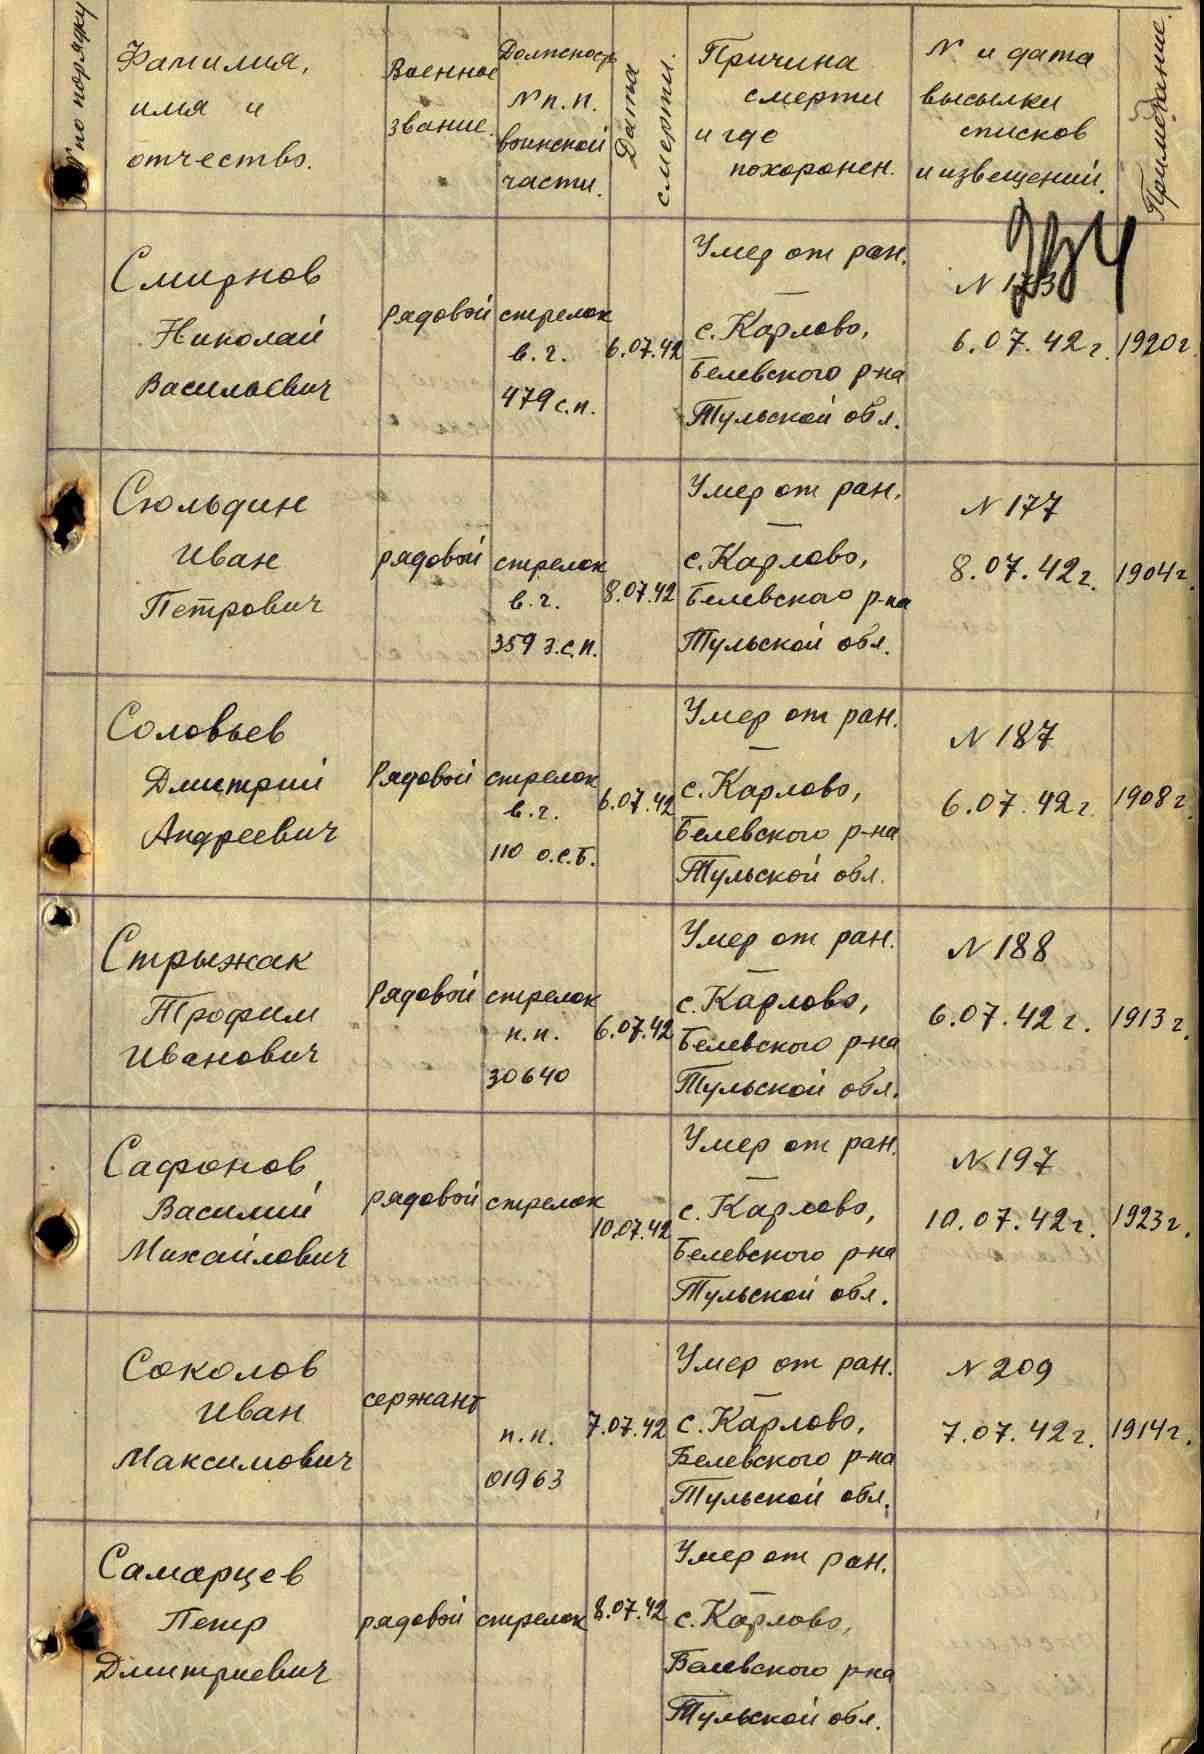 № по порядку
Фамилия,
имя и
отчество.
Военное
звание.
Должность
№ п.п.
воинской
части.
Дата
смерти.
Причина
смерти
и где
похоронен.
№ и дата
высылки
списков
и извещений.
Примечание.
Смирнов
Николай
Васильевич
рядовой
стрелок
в.г.
479 с.п.
6.07.42
Умер от ран.
с. Карлово,
Белевского р-на
Тульской обл.
6.07.42г.
1920г.
Сюльдин
Иван
Петрович
рядовой
стрелок
в.г.
359 з.с.п.
8.07.42
Умер от ран.
с. Карлово,
Белевского р-на
Тульской обл.
№ 177
8.07.42г.
1904г.
Соловьев
Дмитрий
Андреевич
Рядовой
стрелок
в.г.
110 о.с.б.
6.07.42
Умер от ран.
с. Карлово,
Белевского р-на
Тульской обл.
№ 187
6.07.42г.
1908г.
Стрыжак
Трофим
Иванович
Рядовой
стрелок
п.п.
30640
6.07.42
Умер от ран.
с. Карлово,
Белевского р-на
Тульской обл.
№ 188
6.07.42г.
1913г.
Сафонов
Василий
Михайлович
рядовой
стрелок
10.07.42
Умер от ран.
с. Карлово,
Белевского р-на
Тульской обл.
№ 197
10.07.42г.
1923г.
Соколов
Иван
Максимович
сержант
п.п.
01963
7.07.42
Умер от ран.
с. Карлово,
Белевского р-на
Тульской обл.
№ 209
7.07.42г.
1914г.
Самарцев
Петр
Дмитриевич
рядовой
стрелок
8.07.42
Умер от ран.
с. Карлово,
Белевского р-на
Тульской обл.